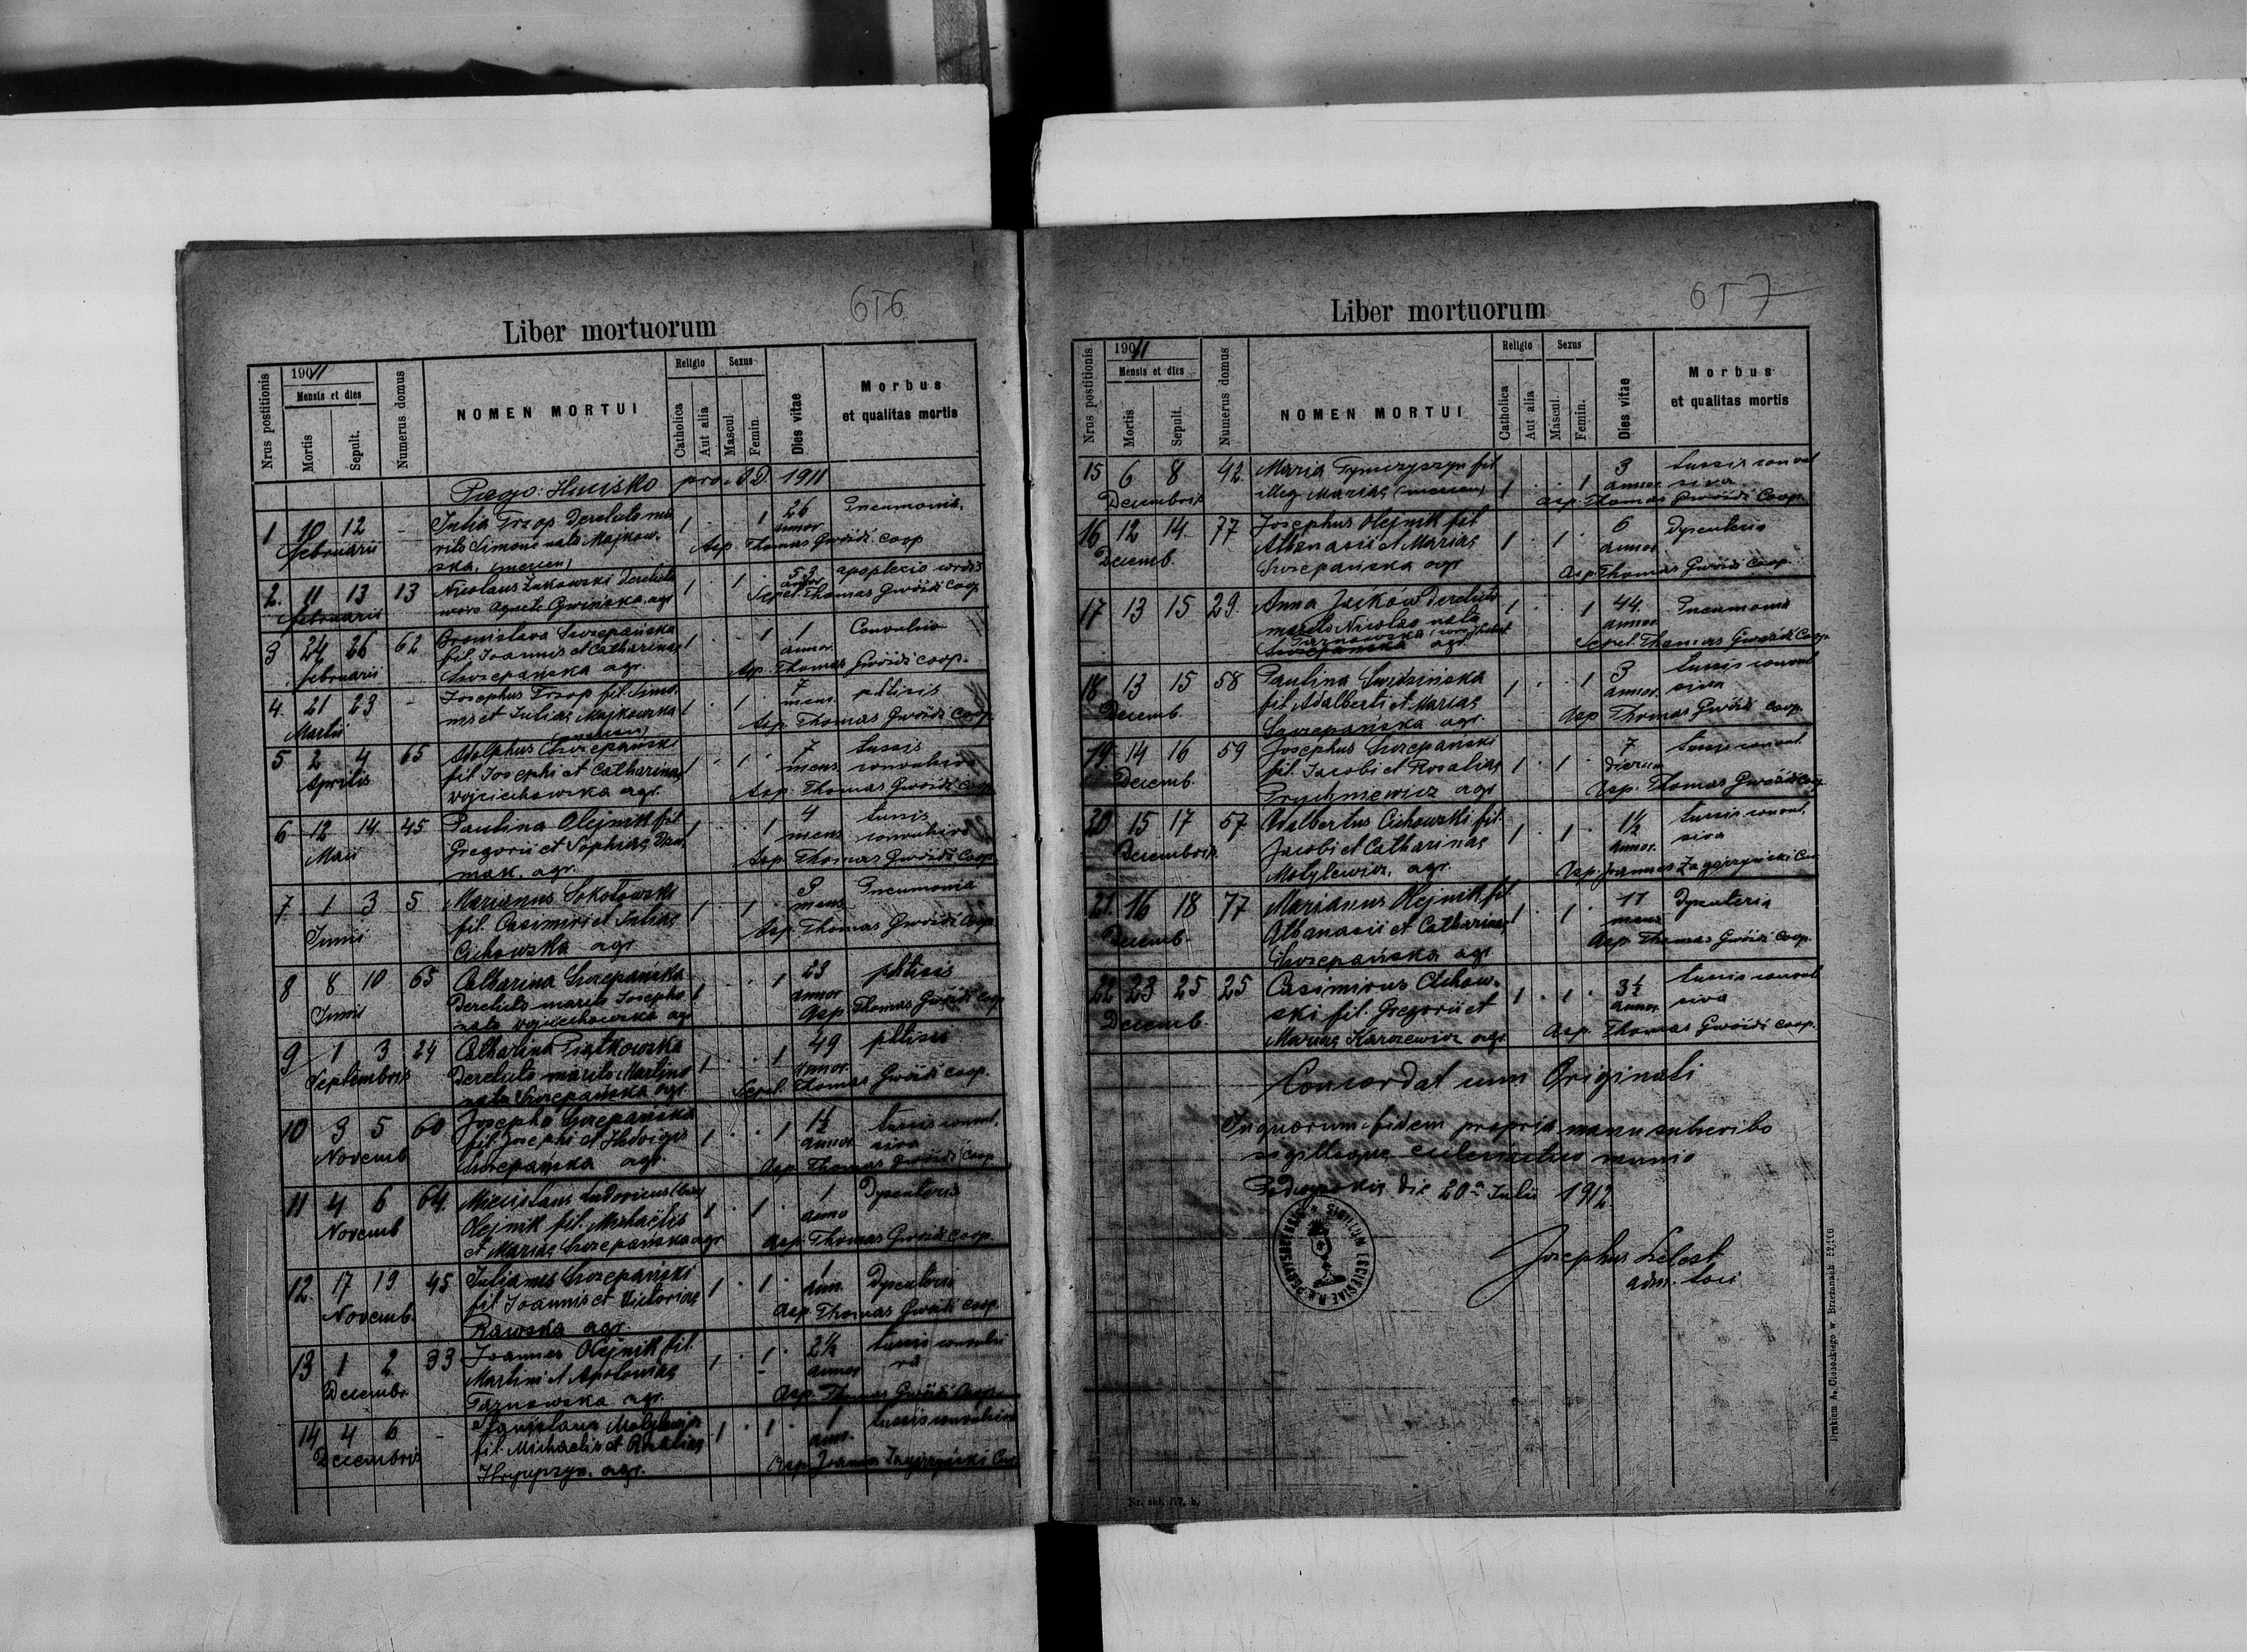 616
Liber mortuorum
Nrus postitionis
1911
Mensis et dies
Mortis
Sepult.
Numerus domus
NOMEN MORTUI
Religio
Catholica
Aut alia
Sexus
Mascul.
Femin.
Dies vitae
Morbus
et qualitas mortis
Pago: Hucisko pro A.D. 1911
1 10 12 - Julia Trzop derelicto ma 1 1 26 Pneumonia
Februarii rito Simone nata Majkow annor
ska, Asp. Thomas Gwóźdź coop
2. 11 13 13 Nicolaus Żukowski derelicta 1 1 53 apoplexio cordis
Februarii uxore Agnete Gwińska agr annor Sepel. Thomas Gwóźdź coop
3 24 26 62 Bronislava Szczepańska 1 1 1 Convulsio
Februarii fil. Joannis et Catharinae annor.
Szczepańska agr. Asp. Thomas Gwóźdź coop.
4. 21 23 - Josephus Trzop fil. Simo 1 1 7 phtisis
Martii nis et Juliae Majkowska mens. Asp. Thomas Gwóźdź coop.
5 2 4 65 Adolphus Szczepański 1 1 7 tussis
Aprilis fil. Josephi et Catharinae mens convulsiva
Wojciechowska agr. Asp. Thomas Gwóźdź coop
6 12 14 45 Paulina Olejnik fil 1 1 4 tussis
Maii Gregorii et Sophiae mens convulsiva
mak. agr. Asp. Thomas Gwóźdź coop
7 1 3 5 Marianus Sokołowski 1 1 9 Pneumonia
Junii fil. Casimiri et Juliae mens
Cichowska agr Asp. Thomas Gwóźdź coop
8 8 10 65 Catharina Szczepańska 1 1 23 phtisis
Junii derelicto marito Josepho annor
nata Wojciechowska agr Asp. Thomas Gwóźdź coop
9 1 3 24 Catharina Piątkowska 1 1 49 phtisis
Septembris derelicto marito Martino annor
nata Szczepańska agr. Sepel. Thomas Gwóźdź coop.
10 3 5 60 Josepha Szczepańska 1 1 1½ tussis convul.
Novemb fil. Josephi et Hedvigis annor siva
Szczepańska agr. Asp. Thomas Gwóźdź coop
11 4 6 64. Miecislaus Ludovicus 1 1 1 Dysenteria
Novemb Olejnik fil. Michaelis anno
et Mariae Szczepańska agr Asp. Thomas Gwóźdź coop.
12. 17 19 45 Julianus Szczepański 1 1 1 Dysenteria
Novemb. fil Joannis et Victoriae ann.
Rawska agr. Asp. Thomas Gwóźdź coop.
13 1 2 33 Joannes Olejnik fil. 1 1 2½ tussis convulsi
Decembr Martini et Apoloniae annor va
Tarnawska agr. Asp. Thomas Gwóźdź Coop.
14 4 6 - Stanislaus 1 1 1 tussis convulsiva
Decembris fil. Michaelis et Rosaliae ann.
agr. Asp. Joannes Zagórzyński
617
Liber mortuorum
Nrus postitionis
1911
Mensis et dies
Mortis
Sepult.
Numerus domus
NOMEN MORTUI
Religio
Catholica
Aut alia
Sexus
Mascul.
Femin.
Dies vitae
Morbus
et qualitas mortis
15 6 8 42 Maria Tymczyszyn fil 1 1 3 tussis convul
Decembris illeg Mariae annor siva
Asp. Thomas Gwóźdź Coop.
16 12 14 77 Josephus Olejnik fil 1 1 6 Dysenteria
Decemb. Athanasii et Mariae annor
Szczepańska agr Asp Thomas Gwóźdź coop.
17 13 15 29. Anna Jacków derelicto 1 1 44 Pneumonia
marito Nicolao nata annor
Tarnawska
Szczepańska agr Sepel. Thomas Gwóźdź Coop.
18 13 15 58 Paulina Świdzińska 1 1 3 tussis convul
Decemb. fil Adalberti et Mariae annor. siva
Szczepańska agr. Asp Thomas Gwóźdź coop.
19. 14 16 59 Josephus Szczepański 1 1 7 tussis convul.
Decemb. fil. Jacobi et Rosaliae dierum
Prychniewicz agr Asp. Thomas Gwóźdź coop.
20 15 17 57 Adalbertus Cichowski fil. 1 1 1½ tussis convul.
Decembris Jacobi et Catharinae annor. siva
Motylewicz, agr. Asp. Joannes Zagórzyński
21. 16 18 77 Marianus Olejnik fil 1 1 11 Dysenteria
Decemb. Athanasii et Catharinae mens
Szczepańska agr Asp. Thomas Gwóźdź coop.
22 23 25 25 Casimirus Cichow- 1 1 3½ tussis convul
Decemb. ski fil. Gregorii et annor. siva
Mariae Karczewicz agr. Asp. Thomas Gwóźdź coop.
Concordat cum Originali
In quorum fidem propria manu subscribo
sigilloque ecclesiastico munio
die 20a Julii 1912.
SIGILLUM ECCLESIAE
Josephus
adm. loci
Drukiem A. Cieszeckiego w Brzeżanach